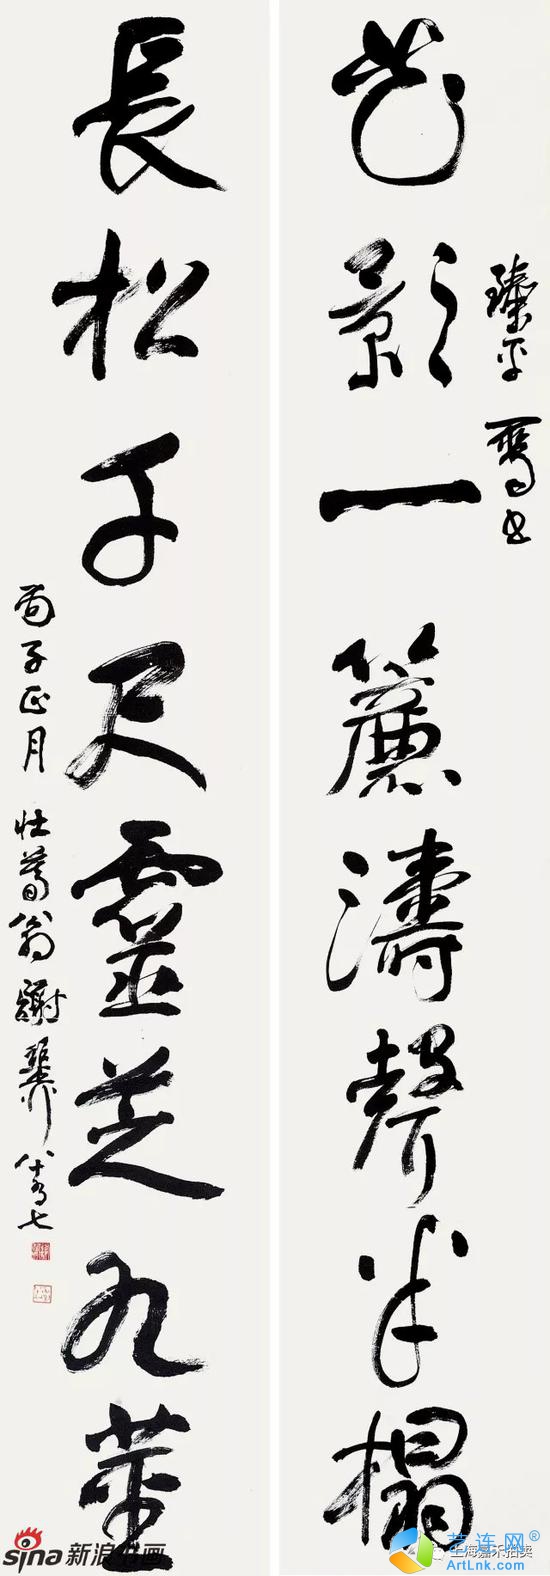 花影一簾濤聲半榻
臻平 書
長松千尺靈芝九莖
丙子正月 壯暮翁謝稚柳八十有七
sina新浪书画
艺连网®
ArtLnk.com
上海嘉禾拍卖